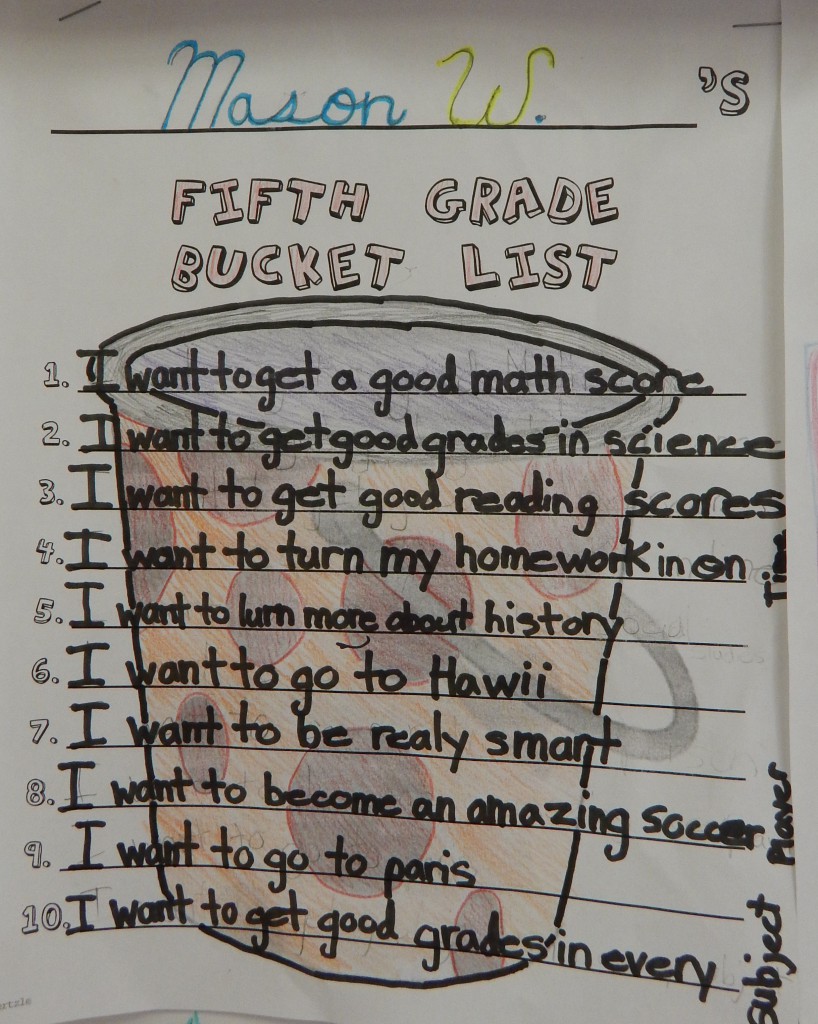 Mason W. 'S
FIFTH GRADE
BUCKET LIST
1. I want to get a good math score
2. I want to get good grades in science
3. I want to get good reading scores
4. I want to turn my homework in on Time
5. I want to lurn more about history
6. I want to go to Hawii
7. I want to be realy smart
8. I want to become an amazing soccer Player
9. I want to go to paris
10. I want to get good grades in every Subject